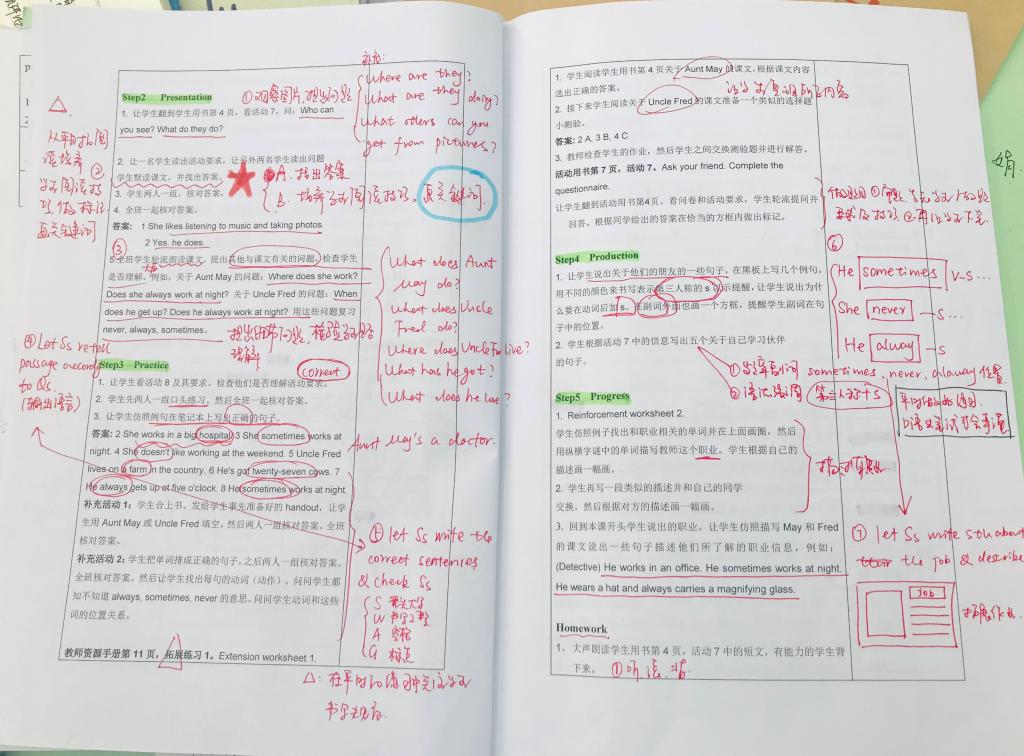 Step2 Presentation
1. 让学生翻到学生用书第 4 页，看活动 7，问：Who can
you see? What do they do?
2. 让一名学生读出活动要求，让另外两名学生读出问题
学生默读课文，并找出答案。
3. 学生两人一组，核对答案。
4. 全班一起核对答案。
答案: 1 She likes listening to music and taking photos.
2 Yes, he does.
5 全班学生轮流阅读课文，提出其他与课文有关的问题，检查学生
是否理解。例如，关于 Aunt May 的问题：Where does she work?
Does she always work at night? 关于 Uncle Fred 的问题：When
does he get up? Does he always work at night? 用这些问题复习
never, always, sometimes.
Step3 Practice
1. 让学生看活动 8 及其要求。检查他们是否理解活动要求。
2. 学生先两人一组口头练习。然后全班一起核对答案。
3. 让学生仿照例句在笔记本上写出正确的句子。
答案: 2 She works in a big hospital. 3 She sometimes works at
night. 4 She doesn't like working at the weekend. 5 Uncle Fred
lives on a farm in the country. 6 He's got twenty-seven cows. 7
He always gets up at five o'clock. 8 He sometimes works at night.
补充活动 1：学生合上书。发给学生事先准备好的 handout，让学
生用 Aunt May 或 Uncle Fred 填空。然后两人一组核对答案。全班
核对答案。
补充活动 2：学生把单词排成正确的句子。之后两人一组核对答案。
全班核对答案。然后让学生找出每句的动词（动作）。问问学生都
知不知道 always, sometimes, never 的意思。问问学生动词和这些
词的位置关系。
教师资源手册第 11 页，拓展练习 1。Extension worksheet 1.
补充:
Where are they?
What are they doing?
What others can you
get from pictures?
①观察图片，提出问题
②
A. 找出答案
B. 培养
圈关键词
③
What does Aunt
May do?
What does Uncle
Fred do?
Where does Uncle Fred live?
What has he got?
What does he love?
correct
④ Let Ss retell
passage according
to Qs.
(输出语言)
Aunt May's a doctor.
let Ss write the
correct sentences
& check Ss
S
W
A
G 标点
△: 在平时的练习中关注
书写规范
1. 学生阅读学生用书第 4 页关于 Aunt May 的课文，根据课文内容
选出正确的答案。
2. 接下来学生阅读关于 Uncle Fred 的课文准备一个类似的选择题
小测验。
答案: 2 A, 3 B, 4 C
3. 教师检查学生的作业，然后学生之间交换测验题并进行解答。
活动用书第 7 页，活动 7。Ask your friend. Complete the
questionnaire.
让学生翻到活动用书第4页。看问卷和活动要求，学生轮流提问并
回答。根据同学给出的答案在恰当的方框内做出标记。
Step4 Production
1. 让学生说出关于他们的朋友的一些句子，在黑板上写几个例句。
用不同的颜色来书写表示第三人称的 s 以示提醒，让学生说出为什
么要在动词后加 s。在副词外面也画一个方框，提醒学生副词在句
子中的位置。
2. 学生根据活动 7 中的信息写出五个关于自己学习伙伴
的句子。
Step5 Progress
1. Reinforcement worksheet 2.
学生仿照例子找出和职业相关的单词并在上面画圈，然后
用纵横字谜中的单词描写教师这个职业。学生根据自己的
描述画一幅画。
2. 学生再写一段类似的描述并和自己的同学
交换，然后根据对方的描述画一幅画。
3. 回到本课开头学生说出的职业。让学生仿照描写 May 和 Fred
的课文说出一些句子描述他们所了解的职业信息，例如：
(Detective) He works in an office. He sometimes works at night.
He wears a hat and always carries a magnifying glass.
Homework
1、大声朗读学生用书第 4 页，活动 7 中的短文，有能力的学生背
下来。
① 听、读、背
⑥
He sometimes V-s...
She never —s...
He alway —s
sometimes, never, alway 位置
第三人称+s
⑦ let Ss write sth about
the job & describe
Job